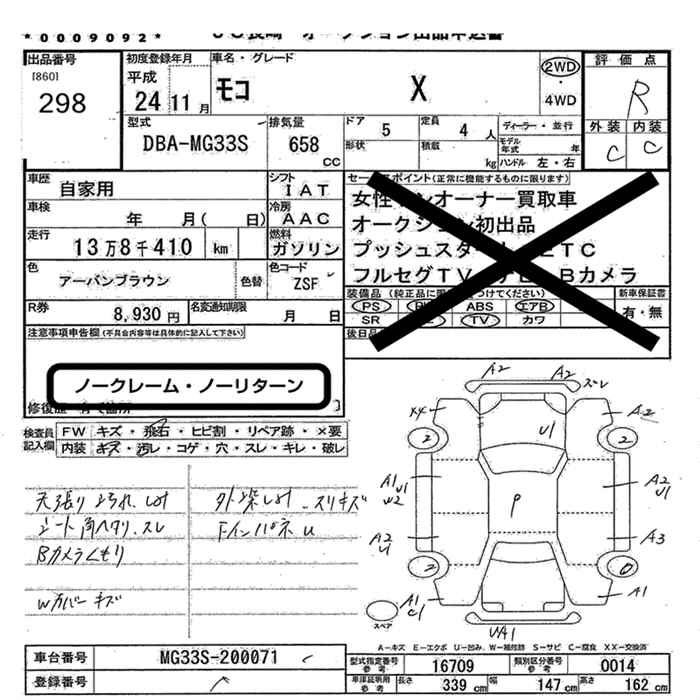 *0009092*
出品番号
[860]
298
初度登録年月
平成
24 11月
車名・グレード
モコ X
2WD
・
4WD
評価点
R
外装 内装
C C
型式
DBA-MG33S
排気量
658
CC
ドア
5
定員
4 人
形状
積載
kg
ディーラー・並行
モデル年式 年
ハンドル 左・右
車歴
自家用
シフト
IAT
車検
年 月( 日)
冷房
AAC
走行
13万8千410 km
燃料
ガソリン
色
アーバンブラウン
色替
色コード
ZSF
R券
8,930円
名変通知期限
月 日
セールスポイント(正常に機能するものに限ります)
オーナー買取車
オークション初出品
プッシュスタート ETC
フルセグTV Bカメラ
装備品
PS ABS エアB
SR TV カワ
新車保証書
有・無
後日品
注意事項申告欄(不具合内容等は具体的に記入して下さい)
ノークレーム・ノーリターン
検査員記入欄
FW キズ・飛石・ヒビ割・リペア跡・×要
内装 キズ・汚レ・コゲ・穴・スレ・キレ・破レ
天張り汚れ、しみ
シート角ヘタリ、スレ
Bカメラくもり
Wカバーキズ
スリキズ
FインパネU
A2 A2 スレ
X4 A2
2 2
U1
A1
U1
W2
A2
U1
P
A2
U1
A3
2 0
A1
C1
A1
UA1
スペア
A-キズ E-エクボ U-凹み W-補修跡 S-サビ C-腐食 XX-交換済
車台番号
MG33S-200071
登録番号
型式指定番号
参考
16709
類別区分番号
参考
0014
車庫証明用
参考
長さ 339 cm 幅 147 cm 高さ 162 cm